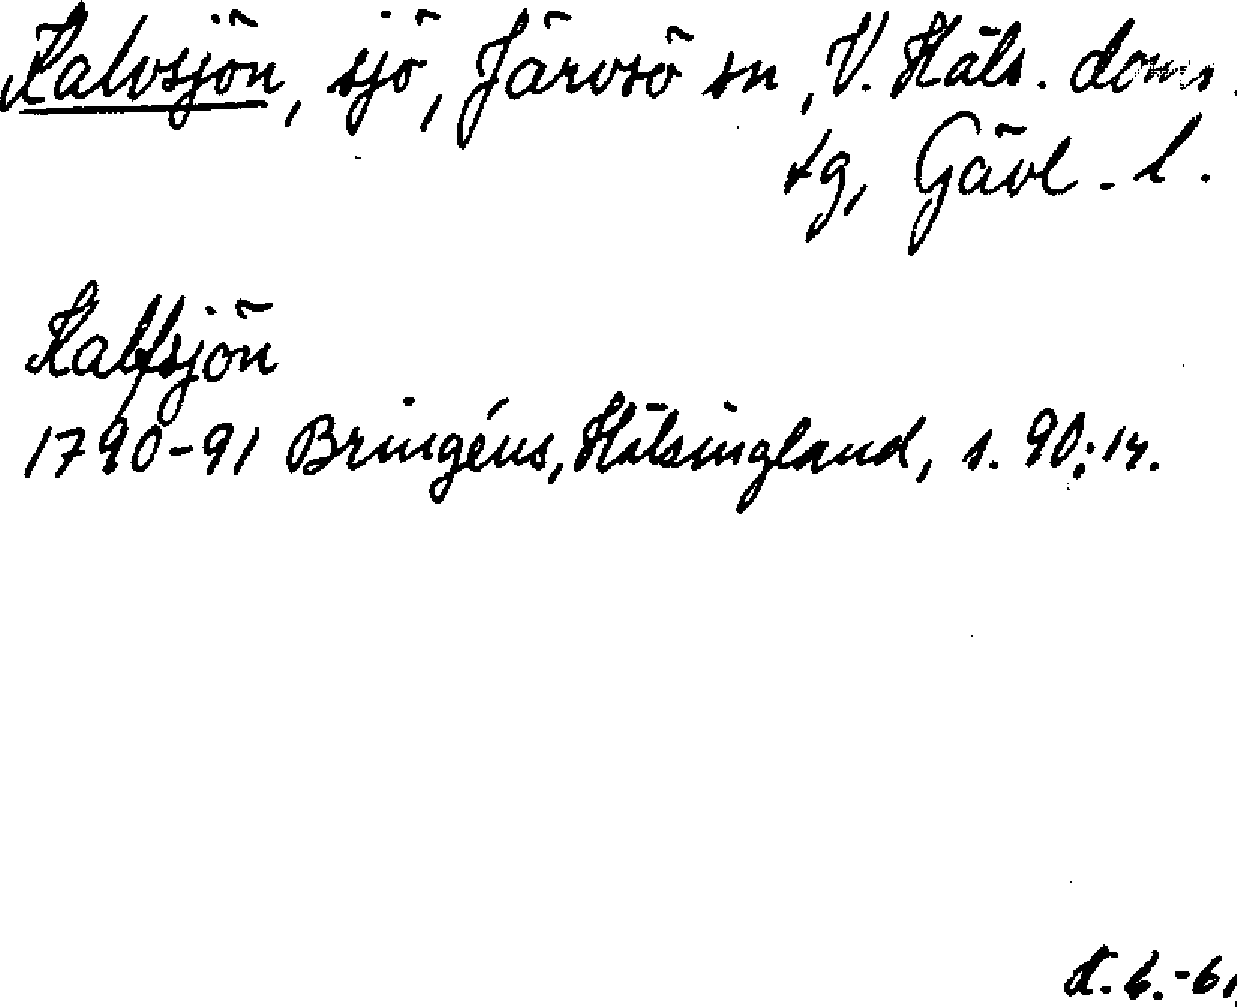 Kalvsjön, sjö, Järvsö sn, V. Häls. doms.
tg, Gävl. l.
Kalfsjön
1790-91 Bringéus, Hälsingland, s. 90; 14.
K. 6.-61